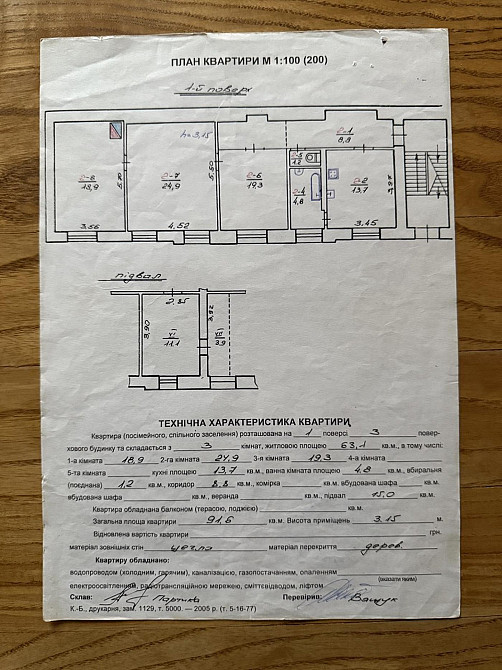 ПЛАН КВАРТИРИ М 1:100 (200)
1-й поверх
h=3,15
2-1
8,8
2-8
18,9
5,30
2-7
24,9
5,50
2-6
19,3
2-5
1,2
2-4
4,8
2-2
13,7
3,97
3,56
4,52
3,45
підвал
2,85
3,90
3,92
VI
11,1
VII
3,9
ТЕХНІЧНА ХАРАКТЕРИСТИКА КВАРТИРИ
Квартира (посімейного, спільного заселення) розташована на 1 поверсі 3 повер-
хового будинку та складається з 3 кімнат, житловою площею 63,1 кв.м., а тому числі:
1-а кімната 18,9 2-га кімната 24,9 3-я кімната 19,3 4-а кімната
5-та кімната кухні площею 13,7 кв.м., ванна кімната площею 4,8 кв.м., вбиральня
(поєднана) 1,2 кв.м., коридор 8,8 кв.м., комірка кв.м., вбудована шафа кв.м.,
вбудована шафа кв.м., веранда кв.м., підвал 15,0 кв.м.
Квартира обладнана балконом (терасою, лоджією) кв.м.
Загальна площа квартири 91,6 кв.м. Висота приміщень 3.15 м.
Відновлена вартість квартири грн.
матеріал зовнішніх стін цегла матеріал перекриття дерев.
Квартиру обладнано:
водопроводом (холодним, гарячим), каналізацією, газопостачанням, опаленням
(вказати яким)
електроосвітленням, радіотрансляційною мережею, сміттєвідводом, ліфтом
Склав: Перевірив: Ващук
К.-Б., друкарня, зам. 1129, т. 5000. — 2005 р. (т. 5-16-77)